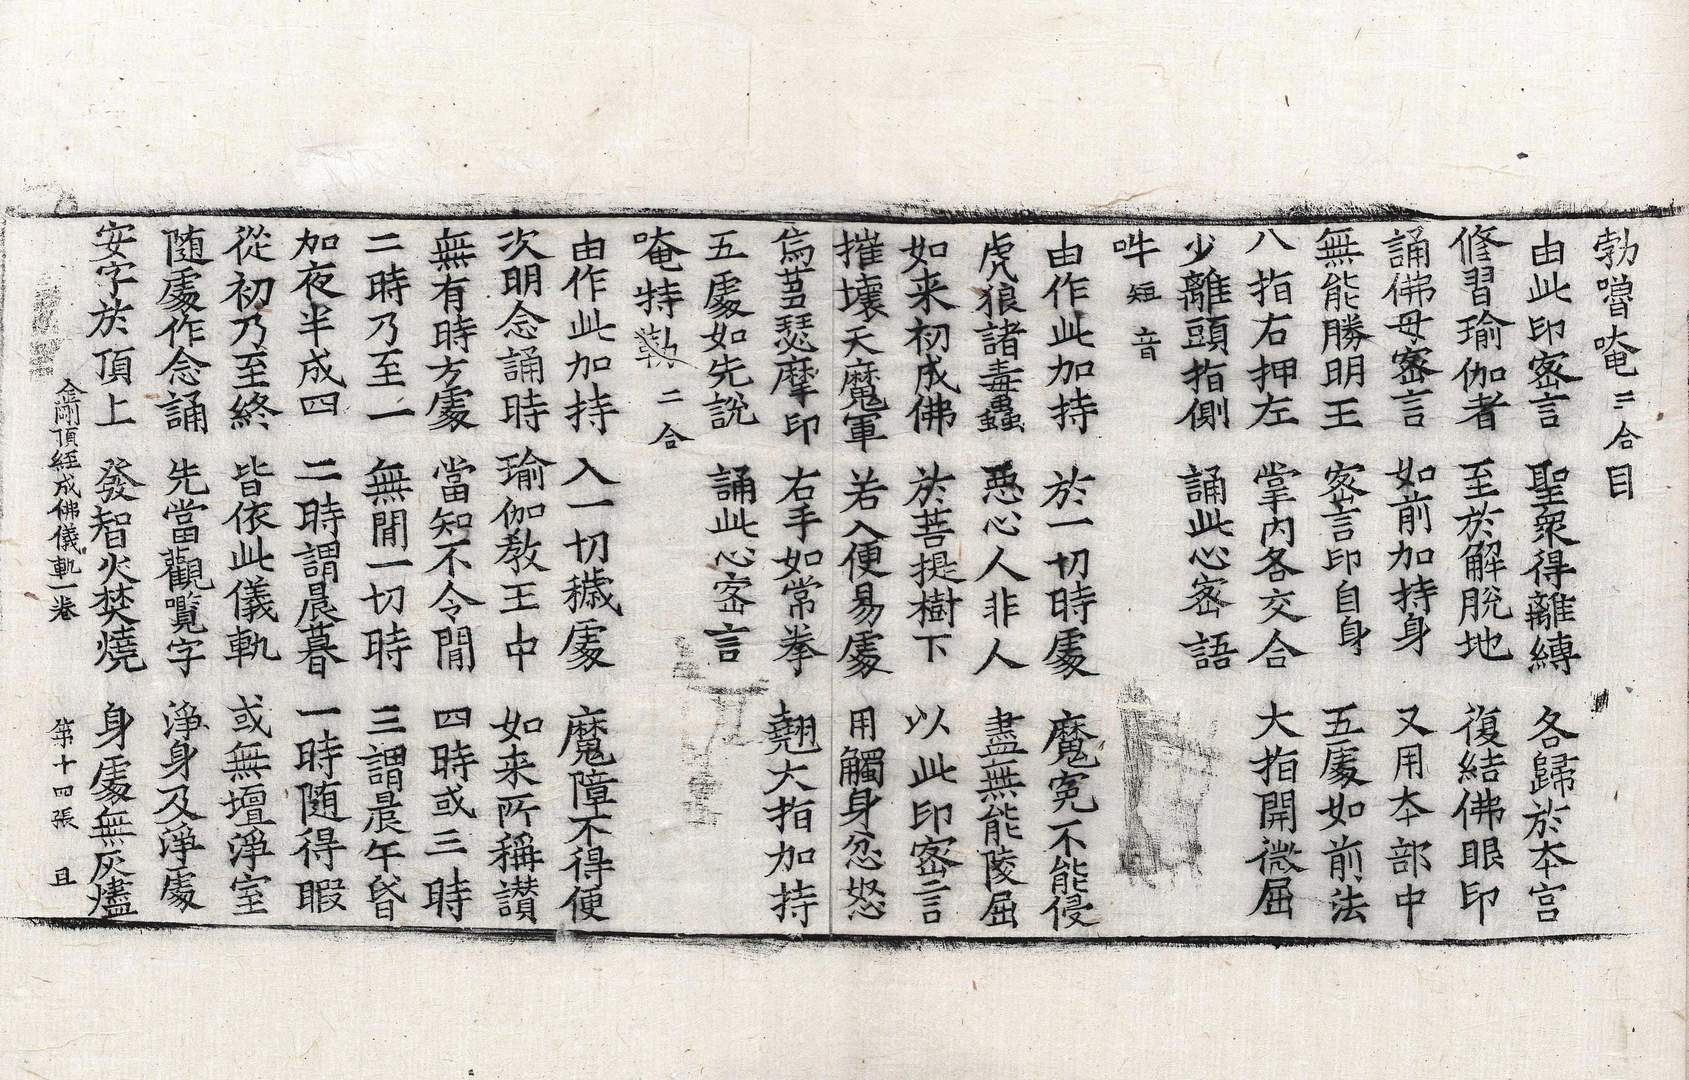 勃嚕唵三合目
由此印密言　聖衆得離縛　各歸於本宫
修習瑜伽者　至於解脫地　復結佛眼印
誦佛母密言　如前加持身　又用本部中
無能勝明王　密言印自身　五處如前法
八指右押左　掌内各交合　大指開微屈
少離頭指側　誦此心密語
吽短音
由作此加持　於一切時處　魔寃不能侵
虎狼諸毒蟲　悪心人非人　盡無能陵屈
如来初成佛　於菩提樹下　以此印密言
摧壞天魔軍　若入便易處　用觸身忿怒
烏蒭瑟摩印　右手如常拳　翹大指加持
五處如先說　誦此心密言
唵特勒二合
由作此加持　入一切穢處　魔障不得便
次明念誦時　瑜伽教王中　如来所稱讃
無有時方處　當知不令閒　四時或三時
二時乃至一　無閒一切時　三謂晨午昏
加夜半成四　二時謂晨暮　一時随得暇
從初乃至終　皆依此儀軌　或無壇淨室
随處作念誦　先當觀覽字　淨身及淨處
安字於頂上　發智火焚燒　身處無灰燼
金剛頂經成佛儀軌一卷　第十四張　且